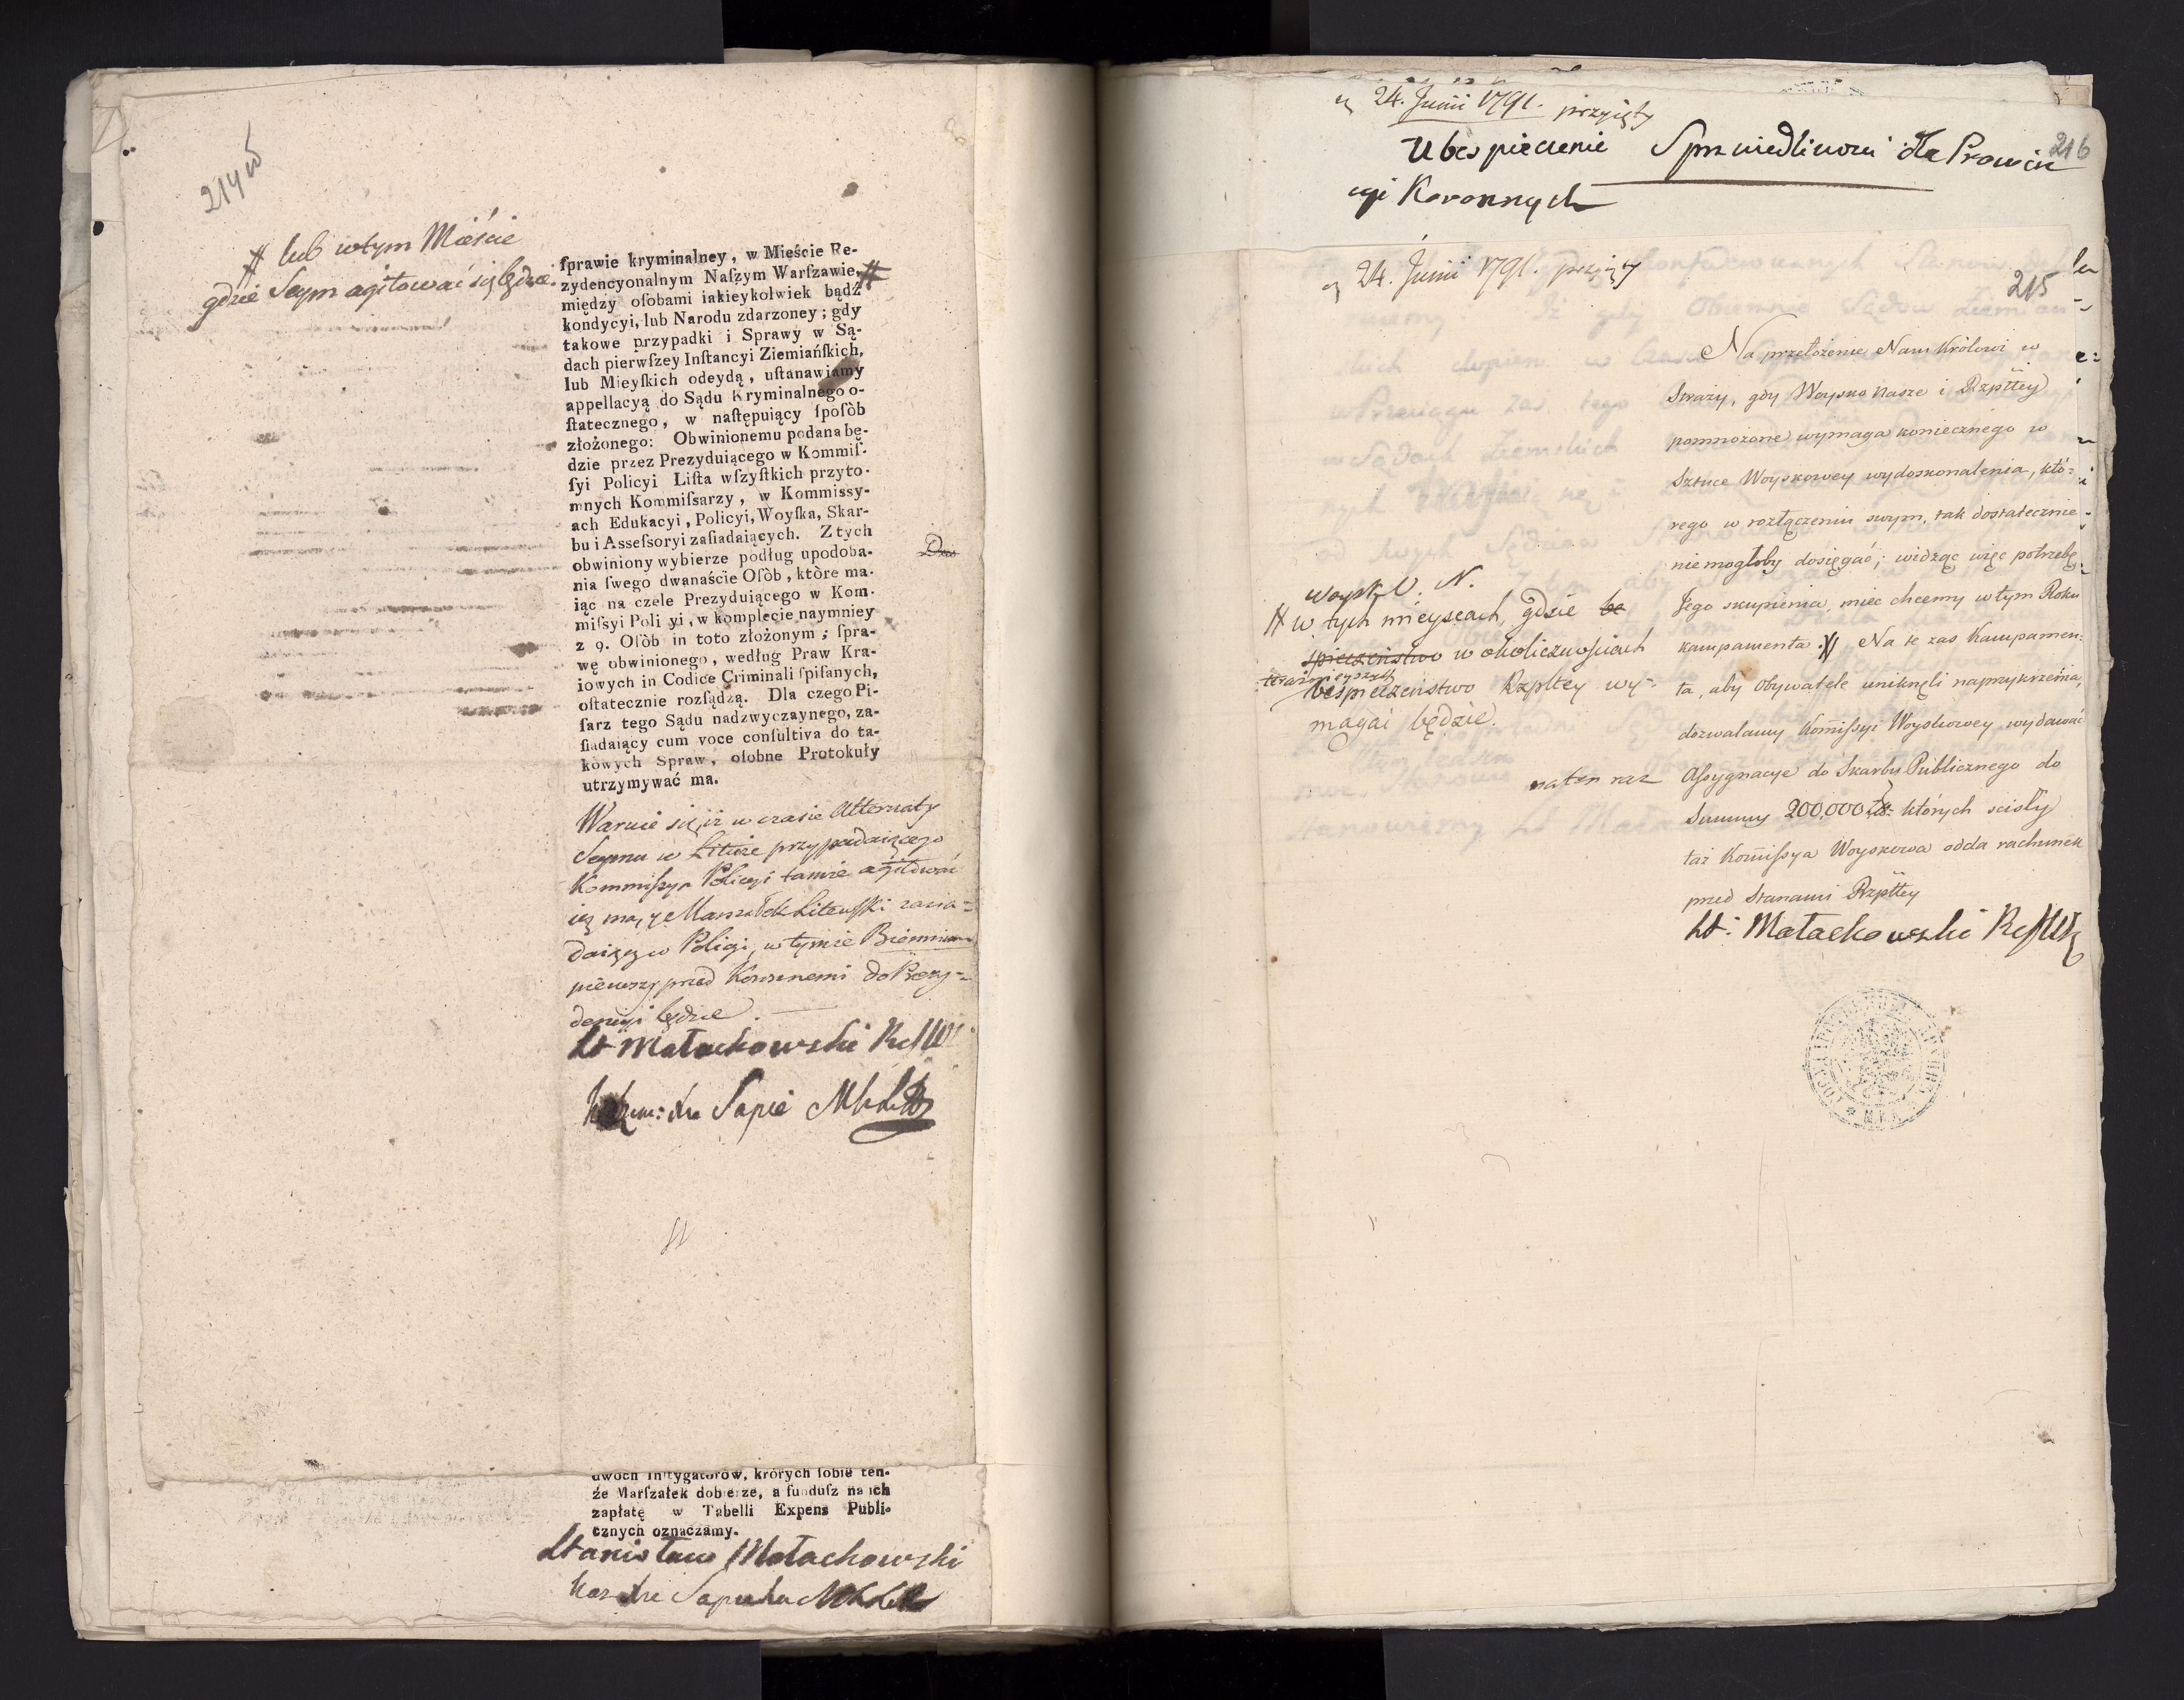 214v
# lub w tym Mieście
gdzie Seym agitować się będzie.
ſprawie kryminalney, w Mieście Re-
zydencyonalnym Naſzym Warſzawie, #
między oſobami iakieykolwiek bądź
kondycyi, lub Narodu zdarzoney; gdy
takowe przypadki i Sprawy w Są-
dach pierwſzey Inſtancyi Ziemiańſkich,
lub Mieyſkich odeydą, uſtanawiamy
appellacyą do Sądu Kryminalnego o-
ſtatecznego, w naſtępuiący ſpoſòb
złożonego: Obwinionemu podana bę-
dzie przez Prezyduiącego w Kommiſ-
ſyi Policyi Liſta wſzyſtkich przyto-
mnych Kommiſsarzy, w Kommissy-
ach Edukacyi, Policyi, Woyſka, Skar-
bu i Aſseſsoryi zaſiadaiących. Z tych
obwiniony wybierze podług upodoba-
nia ſwego dwanaście Oſòb, ktòre ma-
iąc na czele Prezyduiącego w Kom-
miſsyi Poli yi, w komplecie naymniey
z 9. Oſòb in toto złożonym; ſpra-
wę obwinionego, według Praw Kra-
iowych in Codice Criminali ſpiſanych,
oſtatecznie rozſądzą. Dla czego Pi-
ſarz tego Sądu nadzwyczaynego, za-
ſiadaiący cum voce conſultiva do ta-
kòwych Spraw, oſobne Protokuły
utrzymywać ma.
Waruie się, iż w czasie Alternaty
Seymu w Litwie przypadaiącego
Kommiſsya Policyi tamże agitować
się ma, y Marszałek Litewski zasia-
daiący w Policyi, w tymże Biennium
pierwszy przed Koronnemi do Prezy-
dencyi będzie.
St Małachowski RSW
Kazim: Xże Sapie MKLitt
dwoch Inſtygatorow, których ſobie ten-
że Marſzałek dobierze, a funduſz na ich
zapłatę w Tabelli Expens Publi-
cznych oznaczamy.
Stanisław Małachowski
Kaz Xże Sapieha MKLitt
24. Junii 1791. przyięty
Ubespieczenie Sprawiedliwosci dla Prowin
cyi Koronnych
216
24. Junii 1791. przyięty
215
Na przełożenie Nam Królowi w
Straży, gdy Woysko nasze i Rzpltey
pomnożone wymaga koniecznego w
Sztuce Woyskowey wydoskonalenia, któ-
rego w rozłączeniu swym, tak dostatecznie
niemogłoby dosięgać; widząc więc potrzebę
Jego skupienia, mieć chcemy w tym Roku
kampamenta # Na te zas Kampamen-
ta, aby Obywatele uniknęli naprzykrzenia,
dozwalamy Kommiſsyi Woyskowey wydawać
na ten raz Aſsygnacye do Skarbu Publicznego do
Summy 200,000 Zł: których scisły
taż Kommiſsya Woyskowa odda rachunek
przed Stanami Rzpltey
St: Małachowski RSW
Woysk O. N.
# w tych mieyscach, gdzie be
spieczeństwo w okolicznościach
teraźnieyszych
bespieczeństwo Rzpltey wy-
magać będzie.